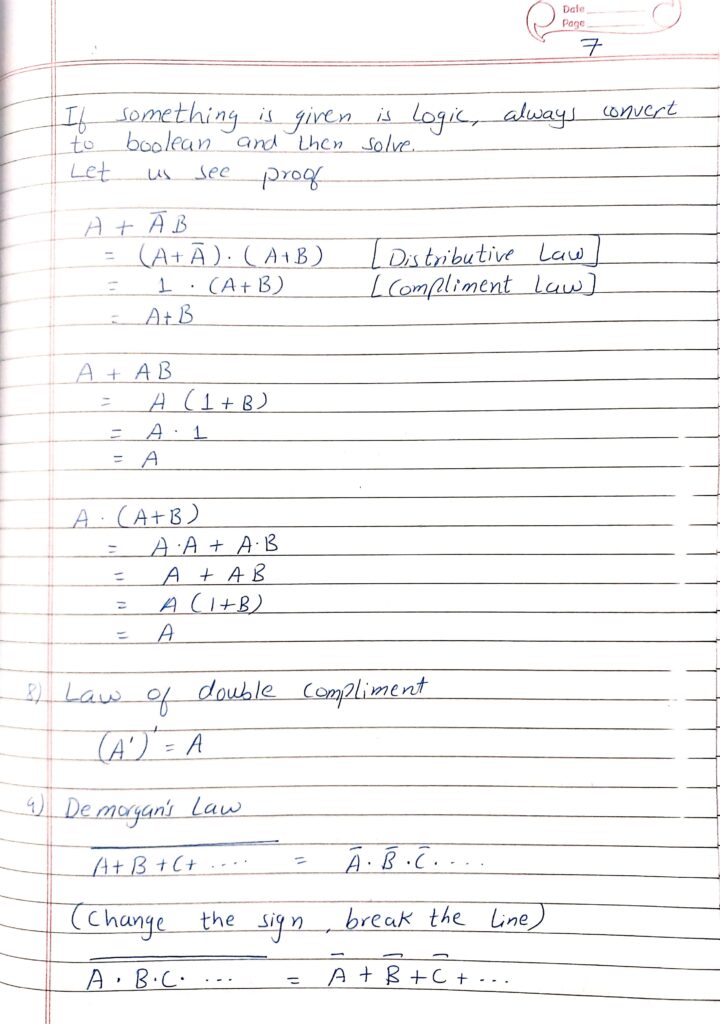 Date
Page
7
If something is given is Logic, always convert
to boolean and then solve.
Let us see proof
A + A̅B
= (A+A̅)·(A+B) [Distributive Law]
= 1 · (A+B) [Compliment Law]
= A+B
A + AB
= A (1+B)
= A · 1
= A
A · (A+B)
= A·A + A·B
= A + AB
= A (1+B)
= A
8) Law of double compliment
(A')' = A
9) Demorgan's Law
A̅+̅B̅+̅C̅+̅.̅.̅.̅.̅ = A̅·B̅·C̅·....
(Change the sign, break the line)
A̅·̅B̅·̅C̅·̅.̅.̅.̅ = A̅ + B̅ + C̅ + ...